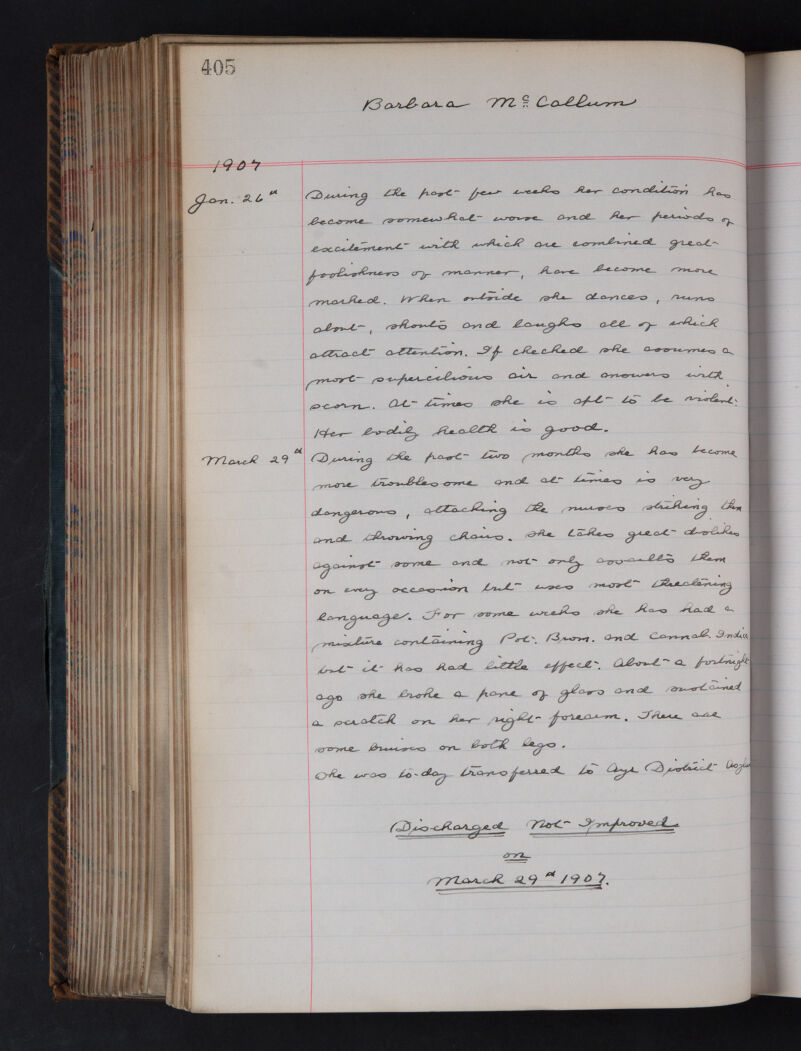 405
Barbara McCallum
1907
Jan. 26th During the past few weeks her condition has
become somewhat worse and her periods of
excitement with which are combined great
foolishness of manner, have become more
marked. When outside she dances, runs
about, shouts and laughs all of which
attract attention. If checked she assumes a
most supercilious air and answers with
scorn. At times she is apt to be violent.
Her bodily health is good.
March 29th During the past two months she has become
more troublesome and at times is very
dangerous, attacking the nurses striking them
and throwing chairs. She takes great dislikes
against some and not only assaults them
on every occasion but uses most threatening
language. For some weeks she has had a
mixture containing Pot. Brom. and Cannab. Indica
but it has had little effect. About a fortnight
ago she broke a pane of glass and sustained
a scratch on her right forearm. There are
some bruises on both legs.
She was to-day transferred to Ayr District Asylum
Discharged Not Improved
on
March 29th 1907.